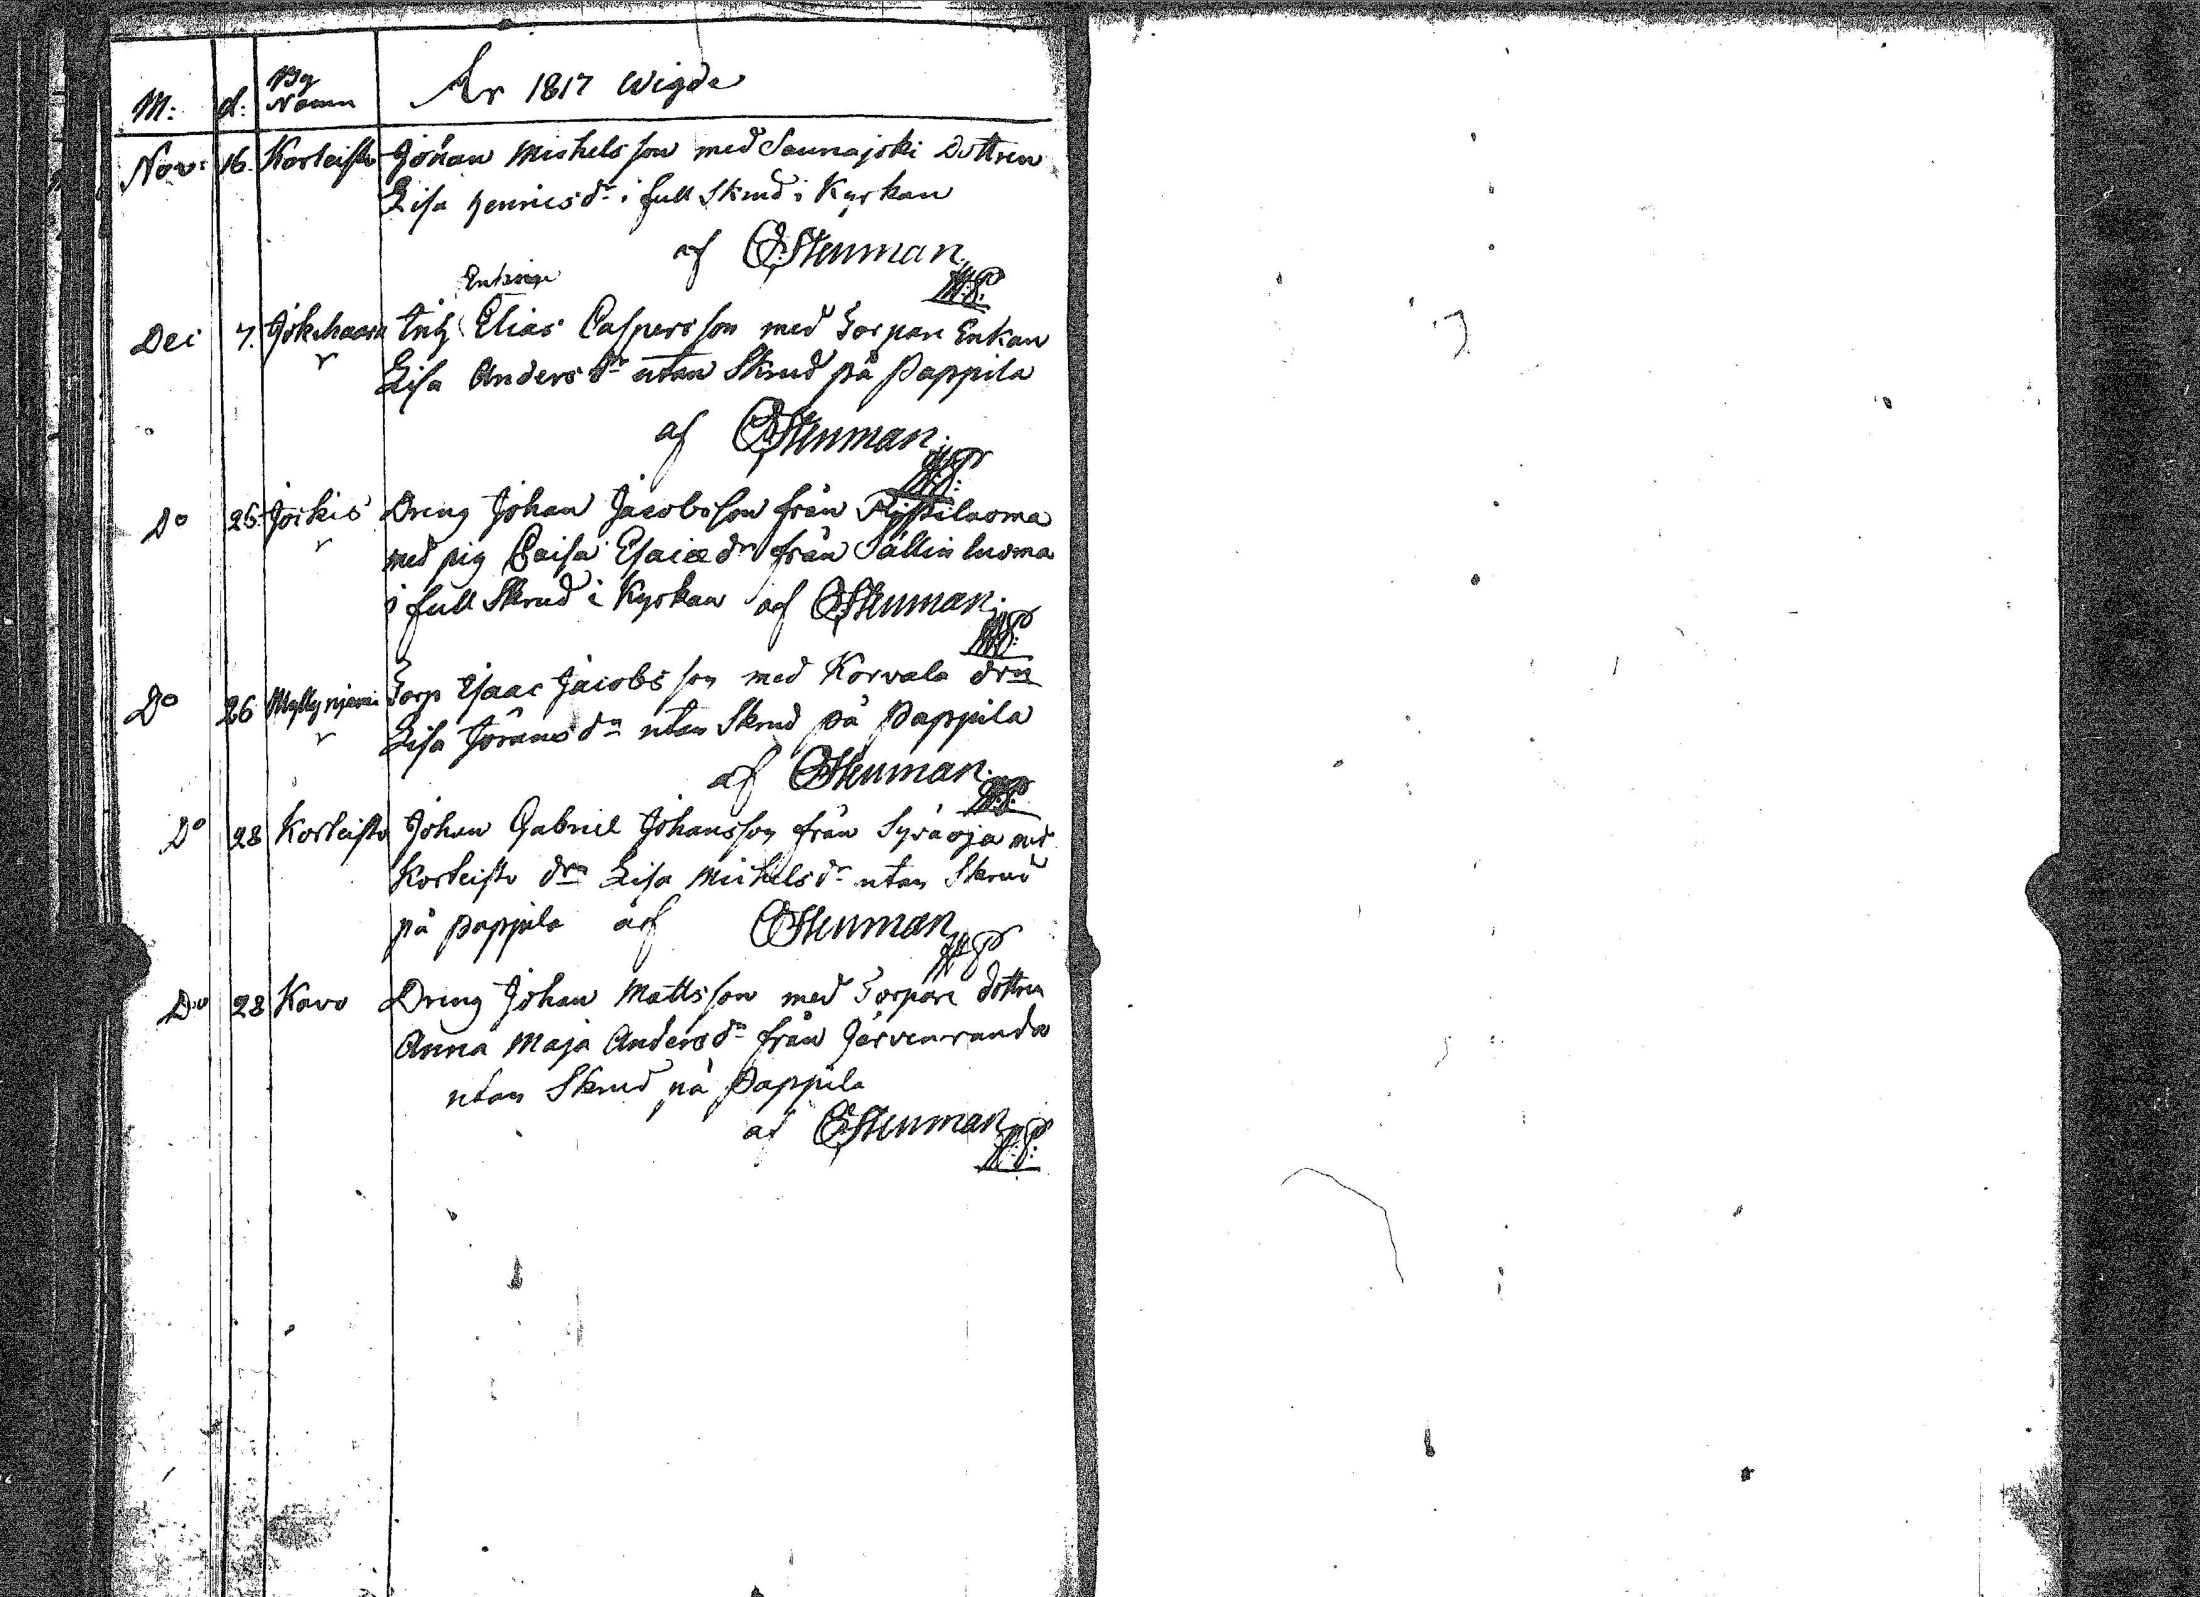 M: d: By Namn År 1817 Wigde
Nov: 16. Korteisto Johan Michelsson med Saunajoki Dottren
Lisa Henricsdr i full Skrud i Kyrkan
af Stenman
Enkling
Dec 7. Jokihaara Inh Elias Caspersson med Torpare Enkan
Lisa Andersdr utan Skrud på Pappila
af Stenman.
Do 26. Joikis Dreng Johan Jacobsson från
med pig Caisa Esaiædr från Sällin luoma
i full Skrud i Kyrkan af Stenman.
Do 26 Myllyniemi Torp Isaac Jacobsson med Korvala drn
Lisa Jöransdr utan Skrud på Pappila
af Stenman.
Do 28 Korteisto Johan Gabriel Johansson från Syväoja med
Korteisto drn Lisa Michelsdr utan Skrud
på pappila af Stenman
Do 28 Kavo Dreng Johan Mattsson med Torpare dottren
Anna Maja Andersdr från Järvenranda
utan Skrud på Pappila
af Stenman